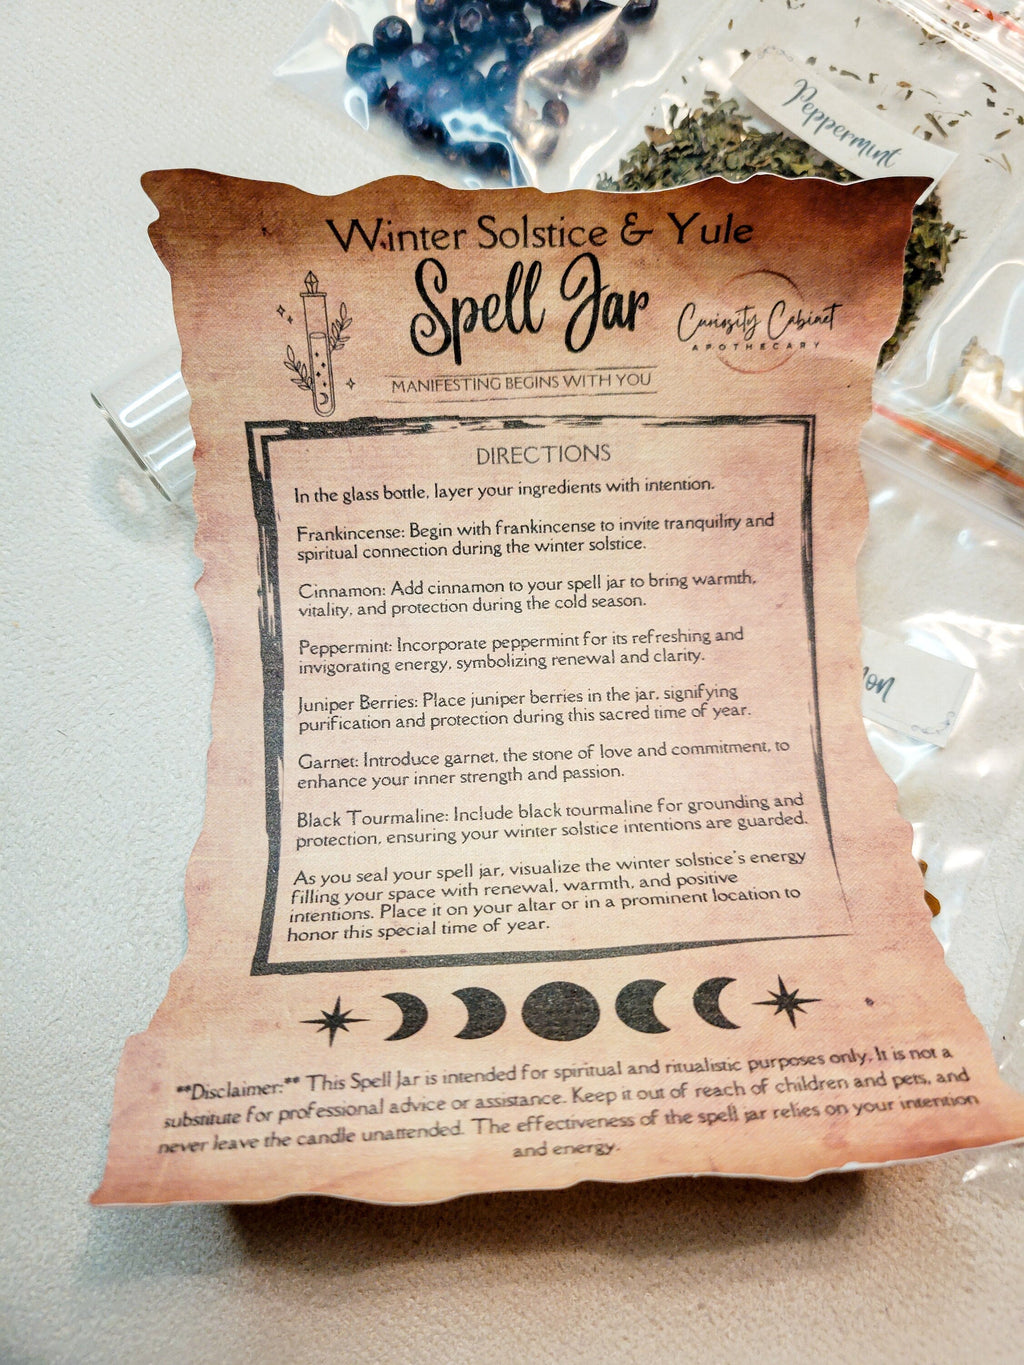 Peppermint
Winter Solstice & Yule
Spell Jar
Curiosity Cabinet
APOTHECARY
MANIFESTING BEGINS WITH YOU
DIRECTIONS
In the glass bottle, layer your ingredients with intention.
Frankincense: Begin with frankincense to invite tranquility and
spiritual connection during the winter solstice.
Cinnamon: Add cinnamon to your spell jar to bring warmth,
vitality, and protection during the cold season.
Peppermint: Incorporate peppermint for its refreshing and
invigorating energy, symbolizing renewal and clarity.
Juniper Berries: Place juniper berries in the jar, signifying
purification and protection during this sacred time of year.
Garnet: Introduce garnet, the stone of love and commitment, to
enhance your inner strength and passion.
Black Tourmaline: Include black tourmaline for grounding and
protection, ensuring your winter solstice intentions are guarded.
As you seal your spell jar, visualize the winter solstice's energy
filling your space with renewal, warmth, and positive
intentions. Place it on your altar or in a prominent location to
honor this special time of year.
**Disclaimer:** This Spell Jar is intended for spiritual and ritualistic purposes only. It is not a
substitute for professional advice or assistance. Keep it out of reach of children and pets, and
never leave the candle unattended. The effectiveness of the spell jar relies on your intention
and energy.